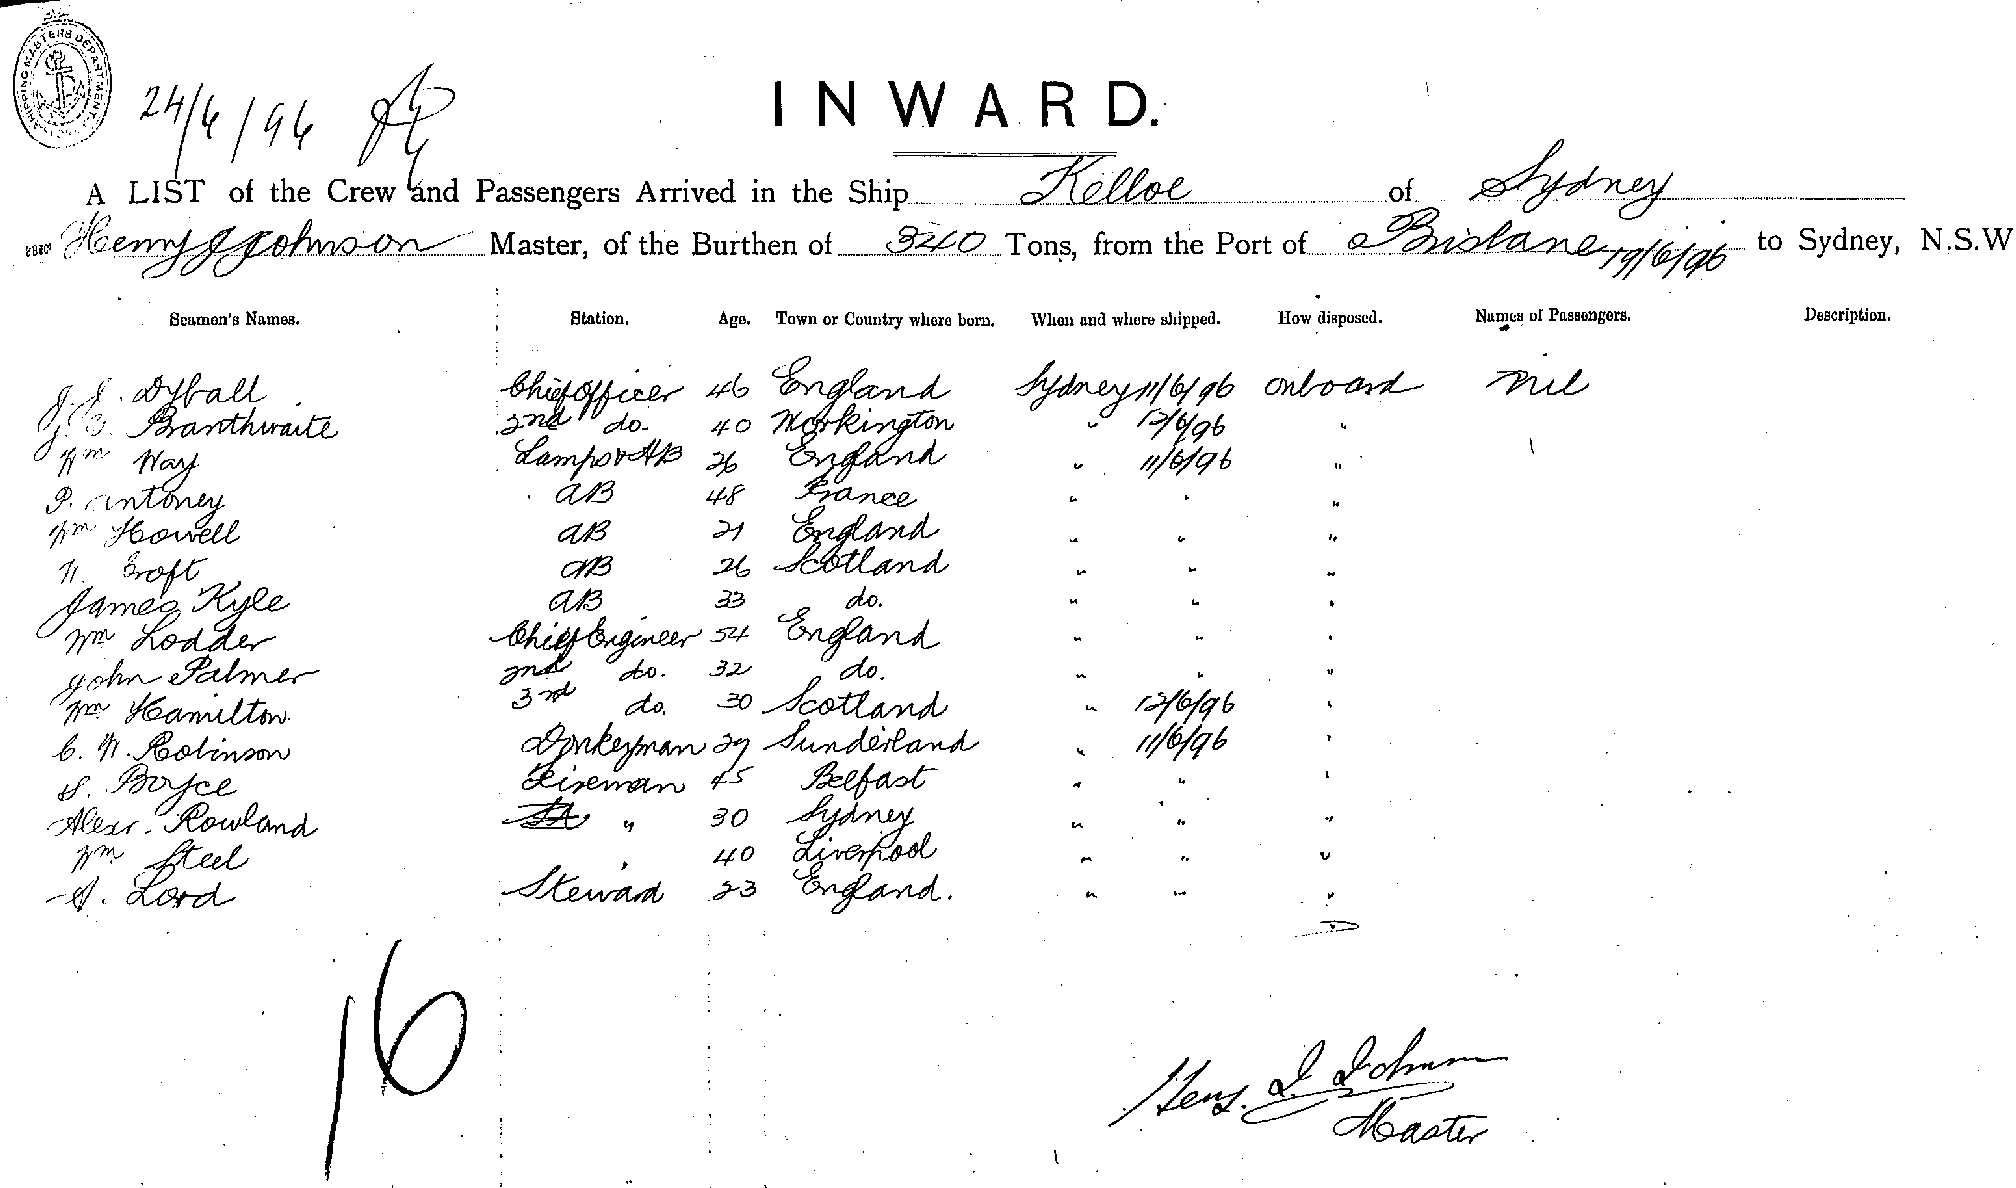 SHIPPING MASTERS DEPARTMENT
24/6/96
INWARD.
A LIST of the Crew and Passengers Arrived in the Ship Kelloe of Sydney
Henry J Johnson Master, of the Burthen of 340 Tons, from the Port of Brisbane 19/6/96 to Sydney, N.S.W
Seamen's Names. Station. Age. Town or Country where born. When and where shipped. How disposed. Names of Passengers. Description.
J. J. Dyball Chief Officer 46 England Sydney 11/6/96 onboard Nil
J. C. Branthwaite 2nd do. 40 Workington " 12/6/96 "
Wm Way Lamps & AB 26 England " 11/6/96 "
P. Antoney AB 48 France " " "
Wm Howell AB 21 England " " "
W. Croft AB 26 Scotland " " "
James Kyle AB 33 do. " " "
Wm Lodder Chief Engineer 54 England " " "
John Palmer 2nd do. 32 do. " " "
Wm Hamilton 3rd do. 30 Scotland " 12/6/96 "
C. W. Robinson Donkeyman 29 Sunderland " 11/6/96 "
S. Boyce Fireman 45 Belfast " " "
Alexr. Rowland " 30 Sydney " " "
Wm Steel " 40 Liverpool " " "
A. Lord Steward 23 England. " " "
16
Heny. J. Johnson
Master